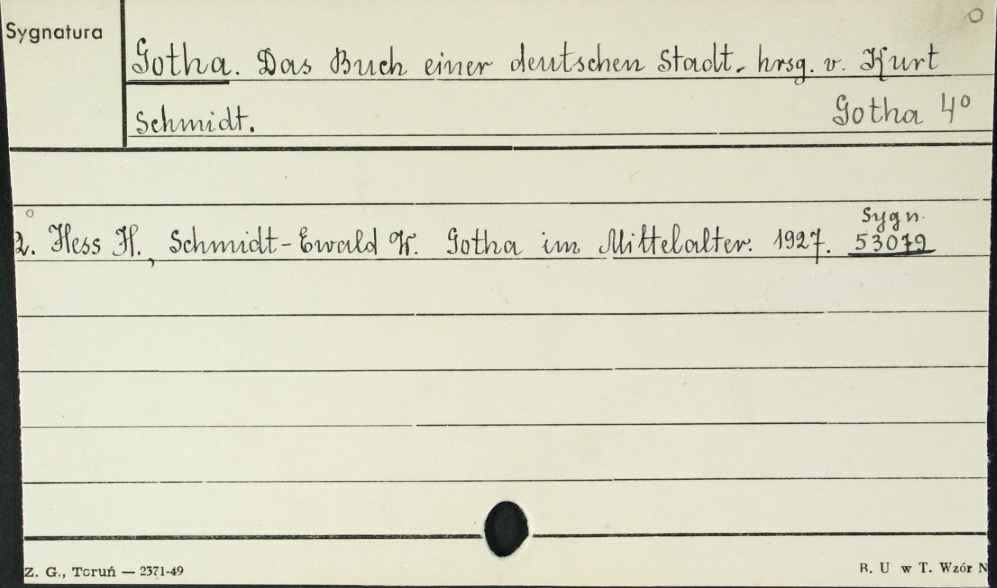 Sygnatura
Gotha. Das Buch einer deutschen Stadt. hrsg. v. Kurt
Schmidt. Gotha 4°
Sygn.
2. Hess H., Schmidt-Ewald W. Gotha im Mittelalter. 1927. 53079
Z. G., Toruń — 2371-49 B. U w T. Wzór N